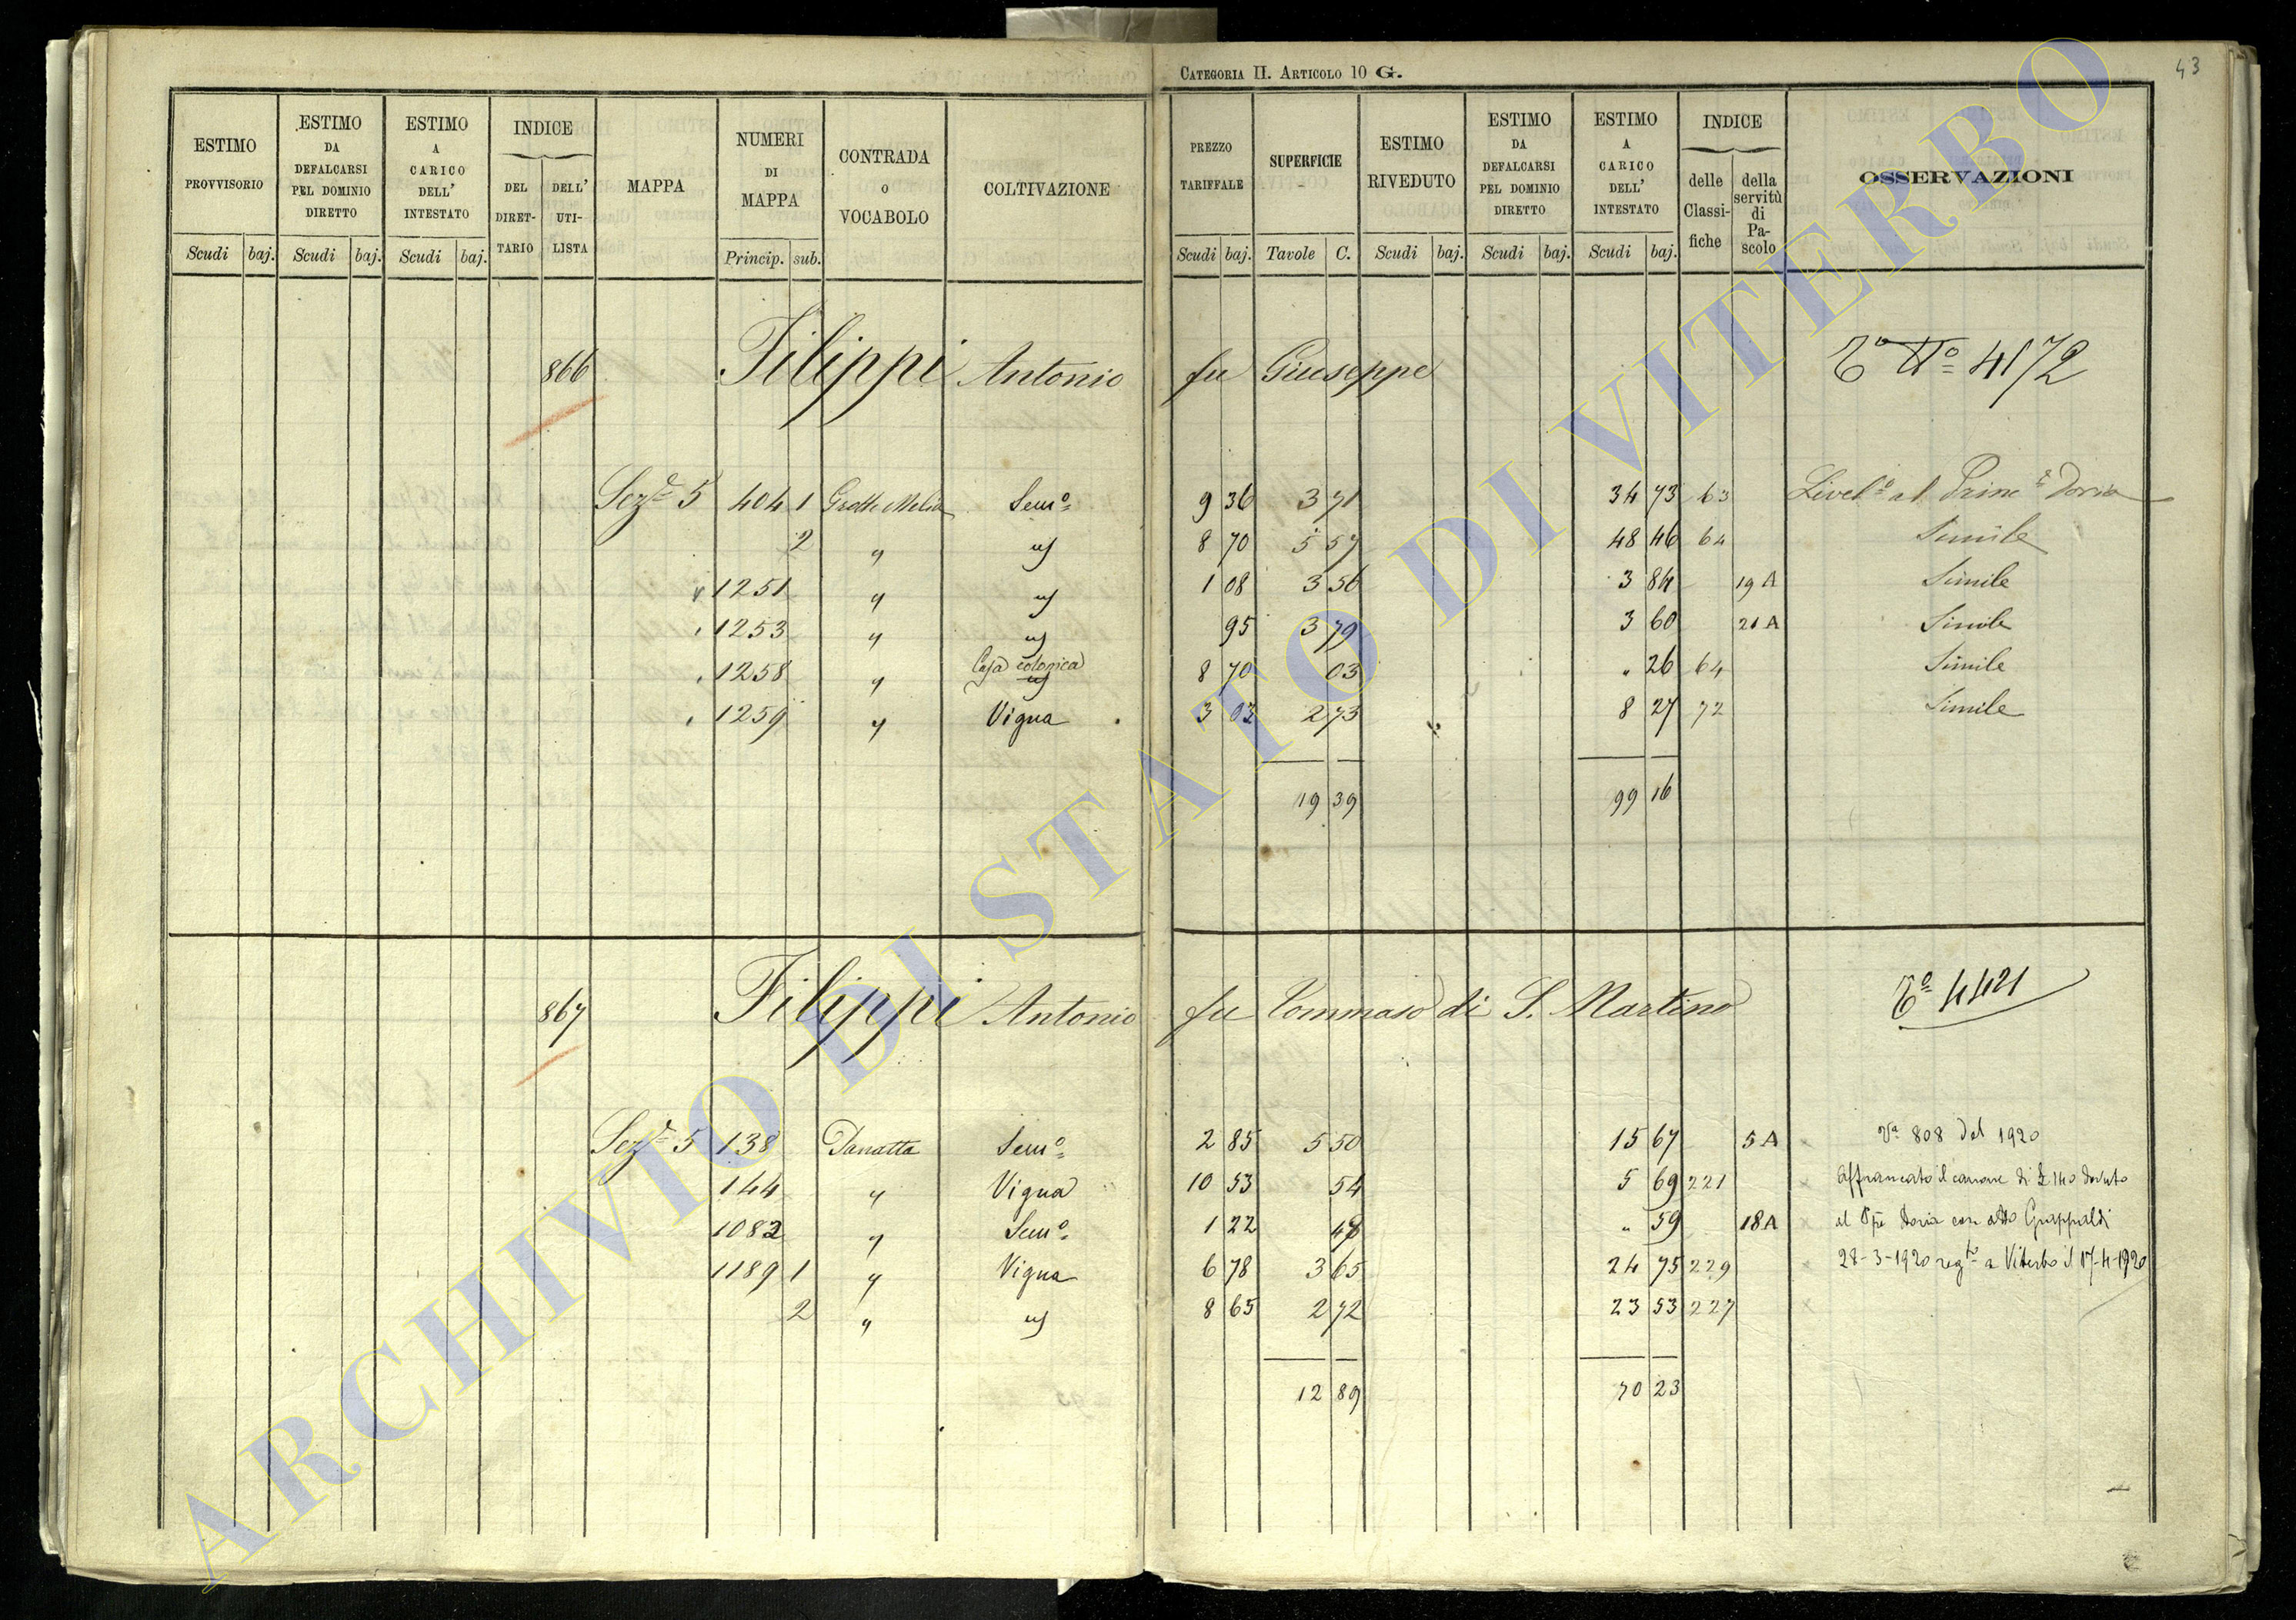 CATEGORIA II. ARTICOLO 10 G.
43
ESTIMO PROVVISORIO Scudi baj.
ESTIMO DA DEFALCARSI PEL DOMINIO DIRETTO Scudi baj.
ESTIMO A CARICO DELL' INTESTATO Scudi baj.
INDICE DEL DIRETTARIO DELL' UTILISTA
MAPPA
NUMERI DI MAPPA Princip. sub.
CONTRADA O VOCABOLO
COLTIVAZIONE
PREZZO TARIFFALE Scudi baj.
SUPERFICIE Tavole C.
ESTIMO RIVEDUTO Scudi baj.
ESTIMO DA DEFALCARSI PEL DOMINIO DIRETTO Scudi baj.
ESTIMO A CARICO DELL' INTESTATO Scudi baj.
INDICE delle Classifiche della servitù di Pascolo
OSSERVAZIONI
866 Filippi Antonio fu Giuseppe Tº Nº 4172
Sezᵉ 5 404 1 Grotte Melia Semº 9 36 3 71 34 73 63 Livelº al Princᵉ Doria
2 " " 8 70 5 57 48 46 64 Simile
1251 " " 1 08 3 56 3 84 19 A Simile
1253 " " 95 3 79 3 60 21 A Simile
1258 " Casa colonica 8 70 03 " 26 64 Simile
1259 " Vigna 3 03 2 73 8 27 72 Simile
19 39 99 16
867 Filippi Antonio fu Tommaso di S. Martino Tº 4421
Sezᵉ 5 138 Panatta Semº 2 85 5 50 15 67 5 A Vª 808 del 1920
144 " Vigna 10 53 54 5 69 221 Affrancato il canone di £ 140 dovuto
1082 " Semº 1 22 48 " 59 18 A al Ppe Doria con atto
1189 1 " Vigna 6 78 3 65 24 75 229 28-3-1920 regᵗᵒ a Viterbo il 17-4-1920
2 " " 8 65 2 72 23 53 227
12 89 70 23
ARCHIVIO DI STATO DI VITERBO